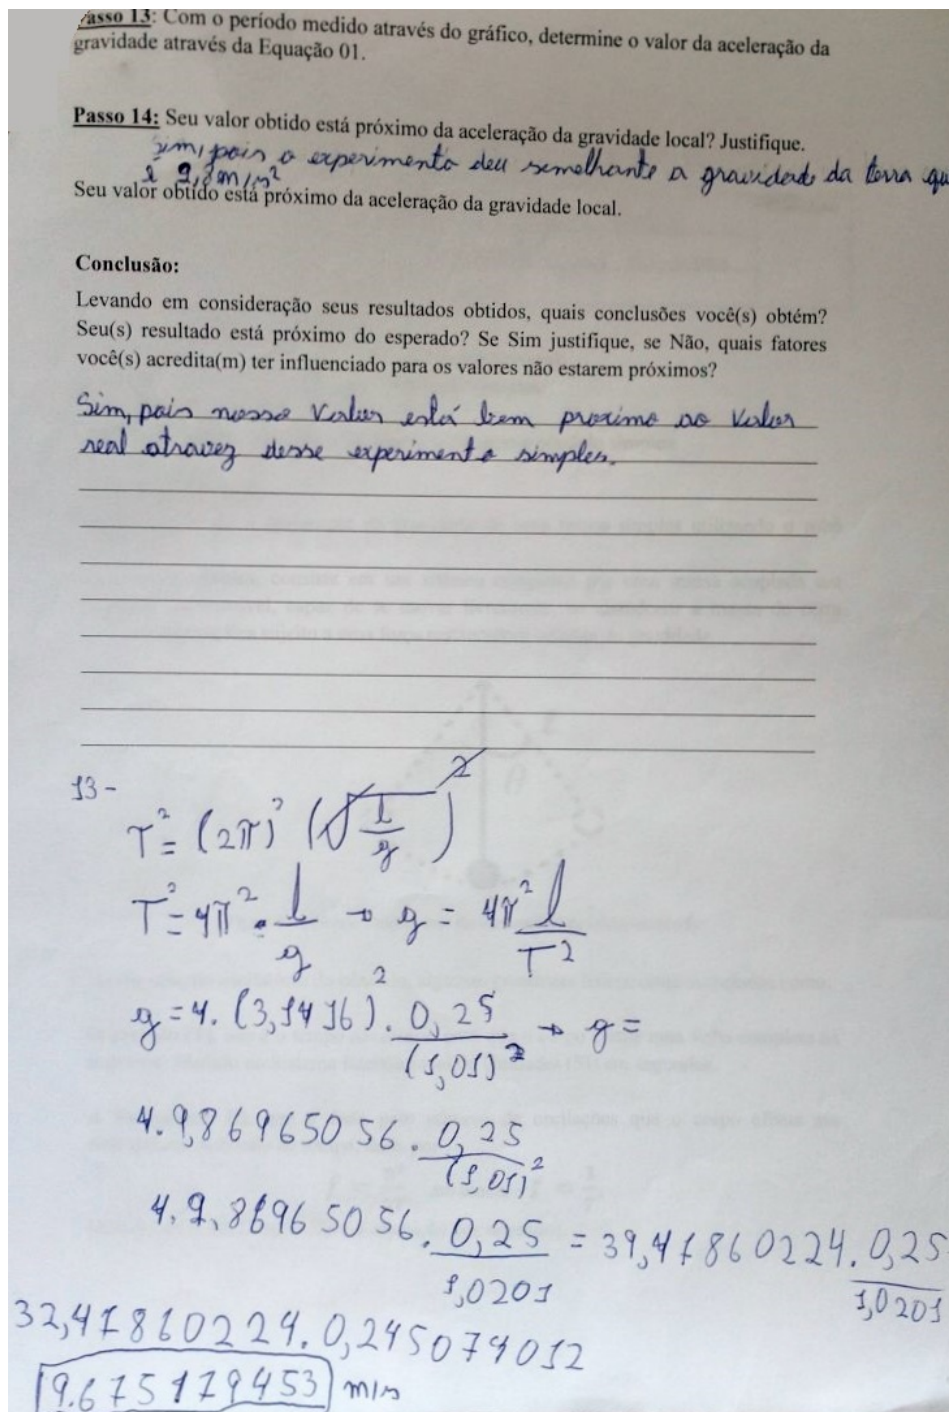 Passo 13: Com o período medido através do gráfico, determine o valor da aceleração da
gravidade através da Equação 01.
Passo 14: Seu valor obtido está próximo da aceleração da gravidade local? Justifique.
sim, pois o experimento deu semelhante a gravidade da terra qu
é 9,8m/s²
Seu valor obtido está próximo da aceleração da gravidade local.
Conclusão:
Levando em consideração seus resultados obtidos, quais conclusões você(s) obtém?
Seu(s) resultado está próximo do esperado? Se Sim justifique, se Não, quais fatores
você(s) acredita(m) ter influenciado para os valores não estarem próximos?
Sim, pois nosso valor está bem proximo ao valor
real atravez desse experimento simples.
13-
T² = (2π)² (√l/g)²
T² = 4π² · l/g → g = 4π² l/T²
g = 4 . (3,1416)² . 0,25/(1,01)² → g =
4 . 9,86965056 . 0,25/(1,01)²
4 . 9,86965056 . 0,25/1,0201 = 39,47860224 . 0,25/1,0201
39,47860224 . 0,245074012
9.675179453 m/s